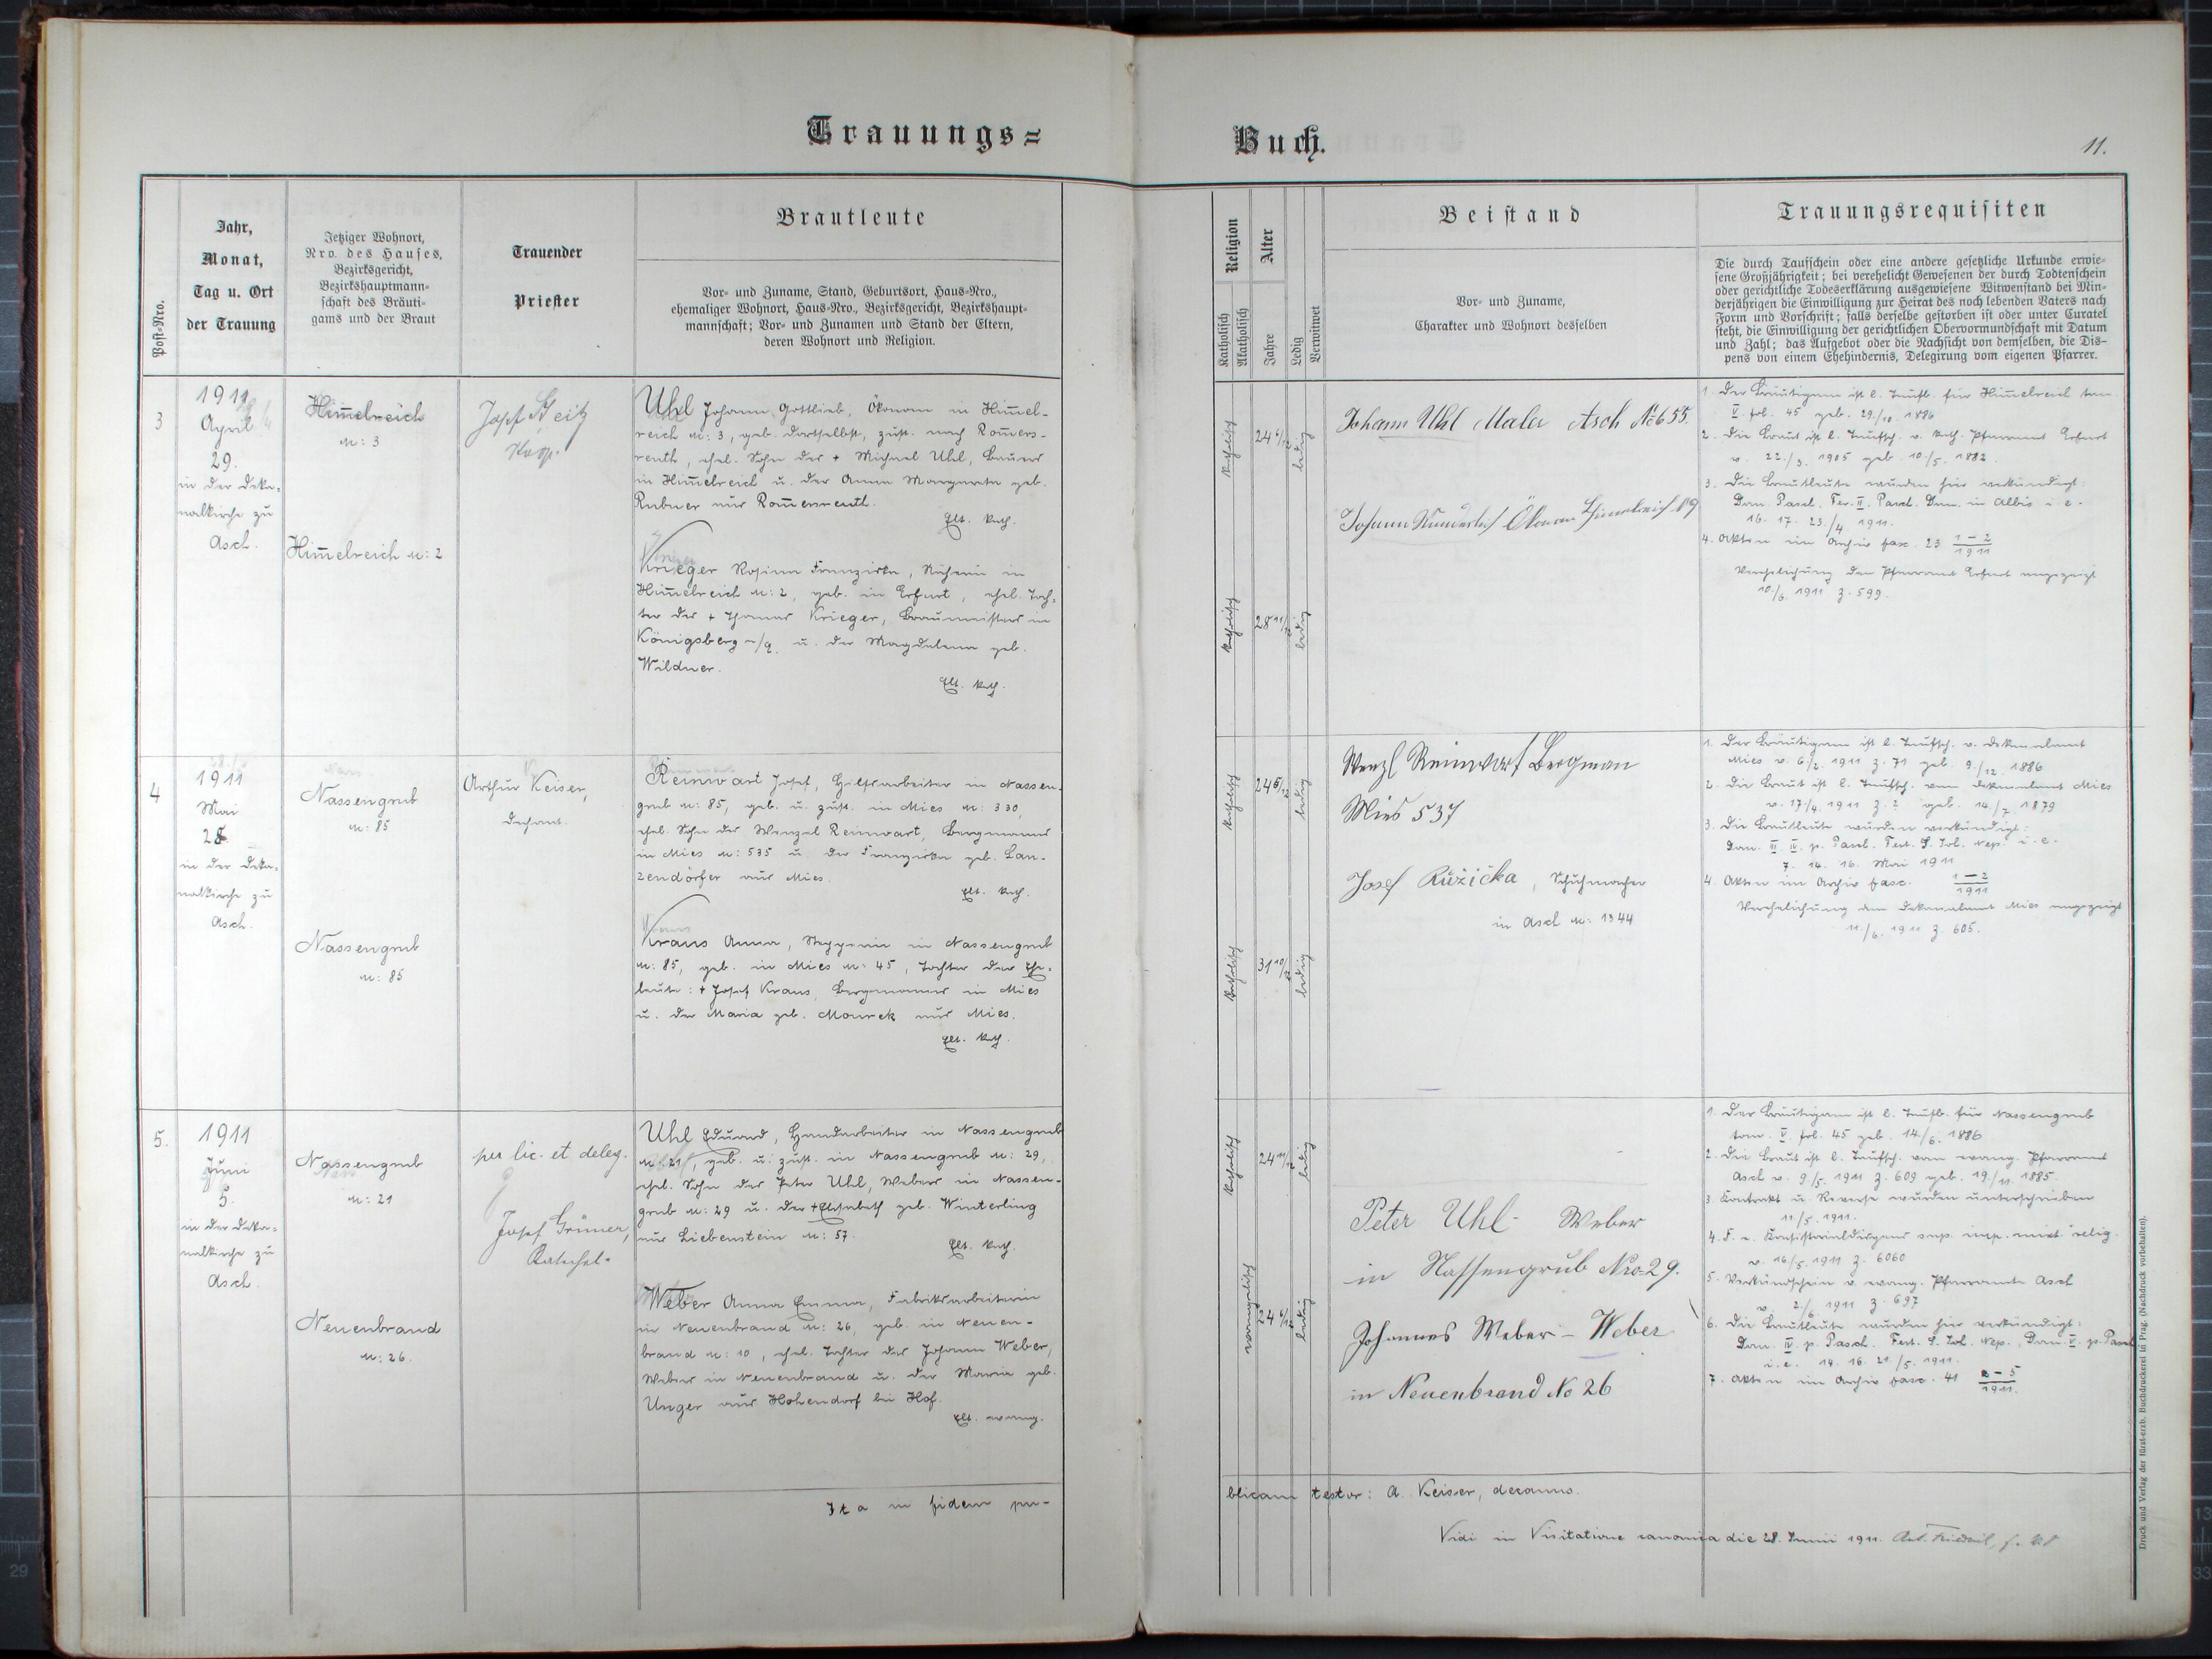 Trauungs=
Buch.
11.
Post-Nro.
Jahr,
Monat,
Tag u. Ort
der Trauung
Jetziger Wohnort,
Nro. des Hauses,
Bezirksgericht,
Bezirkshauptmann=
schaft des Bräuti=
gams und der Braut
Trauender
Priester
Brautleute
Vor- und Zuname, Stand, Geburtsort, Haus-Nro.,
ehemaliger Wohnort, Haus-Nro., Bezirksgericht, Bezirkshaupt-
mannschaft; Vor- und Zunamen und Stand der Eltern,
deren Wohnort und Religion.
Religion
Katholisch
Akatholisch
Alter
Jahre
Ledig
Verwitwet
Beistand
Vor- und Zuname,
Charakter und Wohnort desselben
Trauungsrequisiten
Die durch Taufschein oder eine andere gesetzliche Urkunde erwie-
sene Großjährigkeit; bei verehelicht Gewesenen der durch Todtenschein
oder gerichtliche Todeserklärung ausgewiesene Witwenstand bei Min-
derjährigen die Einwilligung zur Heirat des noch lebenden Vaters nach
Form und Vorschrift; falls derselbe gestorben ist oder unter Curatel
steht, die Einwilligung der gerichtlichen Obervormundschaft mit Datum
und Zahl; das Aufgebot oder die Nachsicht von demselben, die Dis-
pens von einem Ehehindernis, Delegirung vom eigenen Pfarrer.
3
1911
April
29.
in der Deka-
nalkirche zu
Asch.
Himelreich
N: 3
Himelreich N: 2
Josef
Koop.
Uhl Johann Gottlieb, Ökonom in Himel-
reich N: 3, geb. dortselbst, zust. nach Romers-
reuth, ehel. Sohn des + Michael Uhl, Bauers
in Himelreich u. der Anna Margareta geb.
Rubner aus Romersreuth.
Elt. kath.
Krieger Rosina Franziska, in
Himelreich N: 2, geb. in Erfurt, ehel. Toch-
ter des + Thomas Krieger, Braumeisters in
Königsberg a/E. u. der Magdalena geb.
Wildner.
Elt. kath.
katholisch
24 6/12
ledig
katholisch
28 11/12
ledig
Johann Uhl Maler Asch No 655.
Johann Künderlich Ökonom Himelreich N 9
1. Der Bräutigam ist l. Taufb. für Himelreich tom.
V. fol. 45 geb. 29./10. 1886
2. Die Braut ist l. Taufsch. v. kath. Pfarramt Erfurt
v. 22./3. 1905 geb. 10./5. 1882.
3. Die Brautleute wurden hier verkündigt:
Dom. Pasch. Fer. II. Pasch. Dom. in Albis i. e.
16. 17. 23./4. 1911.
4. Akten im Archiv fasc. 23 1-2/1911
Verehelichung dem Pfarramt Erfurt angezeigt
10./6. 1911 Z. 599.
4
1911
Mai
28
in der Deka-
nalkirche zu
Asch.
Nassengrub
N: 85
Nassengrub
N: 85
Arthur Keiser,
Dechant.
Reinwart Josef, Hilfsarbeiter in Nassen-
grub N: 85, geb. u. zust. in Mies N: 330,
ehel. Sohn des Wenzel Reinwart, Bergmanns
in Mies N: 535 u. der Franziska geb. Lan-
zendörfer aus Mies.
Elt. kath.
Kraus Anna, in Nassengrub
N: 85, geb. in Mies N: 45, Tochter der Ehe-
leute: + Josef Kraus, Bergmanns in Mies
u. der Maria geb. Mourek aus Mies.
Elt. kath.
katholisch
24 5/12
ledig
katholisch
31 10/12
ledig
Wenzl Reinwart Bergman
Mies 537
Josef Růžička, Schuhmacher
in Asch N: 1344
1. Der Bräutigam ist l. Taufsch. v. Dekanalamt
Mies v. 6/2. 1911 Z. 71 geb. 9./12. 1886
2. Die Braut ist l. Taufsch. vom Dekanalamt Mies
v. 17/4. 1911 Z. 2 geb. 14/7 1879
3. Die Brautleute wurden verkündigt:
Dom. III. IV. p. Pasch. Fest. S. Jol. Nep. i. e.
7. 14. 16. Mai 1911
4. Akten im Archiv fasc. 1-2/1911
Verehelichung dem Dekanalamt Mies angezeigt
11./6. 1911 Z. 605.
5.
1911
Juni
5.
in der Deka-
nalkirche zu
Asch.
Nassengrub
N: 21
Neuenbrand
N: 26.
per lic. et deleg.
Josef Grüner,
Katechet.
Uhl Eduard, Handarbeiter in Nassengrub
N: 21, geb. u. zust. in Nassengrub N: 29,
ehel. Sohn des Peter Uhl, Webers in Nassen-
grub N: 29 u. der + Elisabeth geb. Winterling
aus Liebenstein N: 57.
Elt. kath.
Weber Anna Emma, Fabriksarbeiterin
in Neuenbrand N: 26, geb. in Neuen-
brand N: 10, ehel. Tochter des Johann Weber,
Webers in Neuenbrand u. der Maria geb.
Unger aus Hohendorf bei Hof.
Elt. evang.
katholisch
24 11/12
ledig
evangelisch
24 6/12
ledig
Peter Uhl - Weber
in Nassengrub Nro 29.
Johannes Weber - Weber
in Neuenbrand No 26
1. Der Bräutigam ist l. Taufb. für Nassengrub
tom. V. fol. 45 geb. 14/6. 1886
2. Die Braut ist l. Taufsch. vom evang. Pfarramt
Asch v. 9/5. 1911 Z. 609 geb. 19./11. 1885.
3. Kontrakt u. Reverse wurden unterschrieben
11/5. 1911.
4. F. e. Konsistorialdispens sup. imp. mixt. relig.
v. 16/5. 1911 Z. 6060
5. Verkündschein v. evang. Pfarramte Asch
v. 2./6. 1911 Z. 697
6. Die Brautleute wurden hier verkündigt:
Dom. IV. p. Pasch. Fest. S. Jol. Nep., Dom. V. p. Pasch
i. e. 14. 16. 21./5. 1911.
7. Akten im Archiv fasc. 41 2-5/1911.
Ita in fidem pu-
blicam testor: A. Keiser, decanus.
Vidi in Visitatione canonica die 28. Junii 1911.
Druck und Verlag der fürst-erzb. Buchdruckerei in Prag. (Nachdruck vorbehalten).